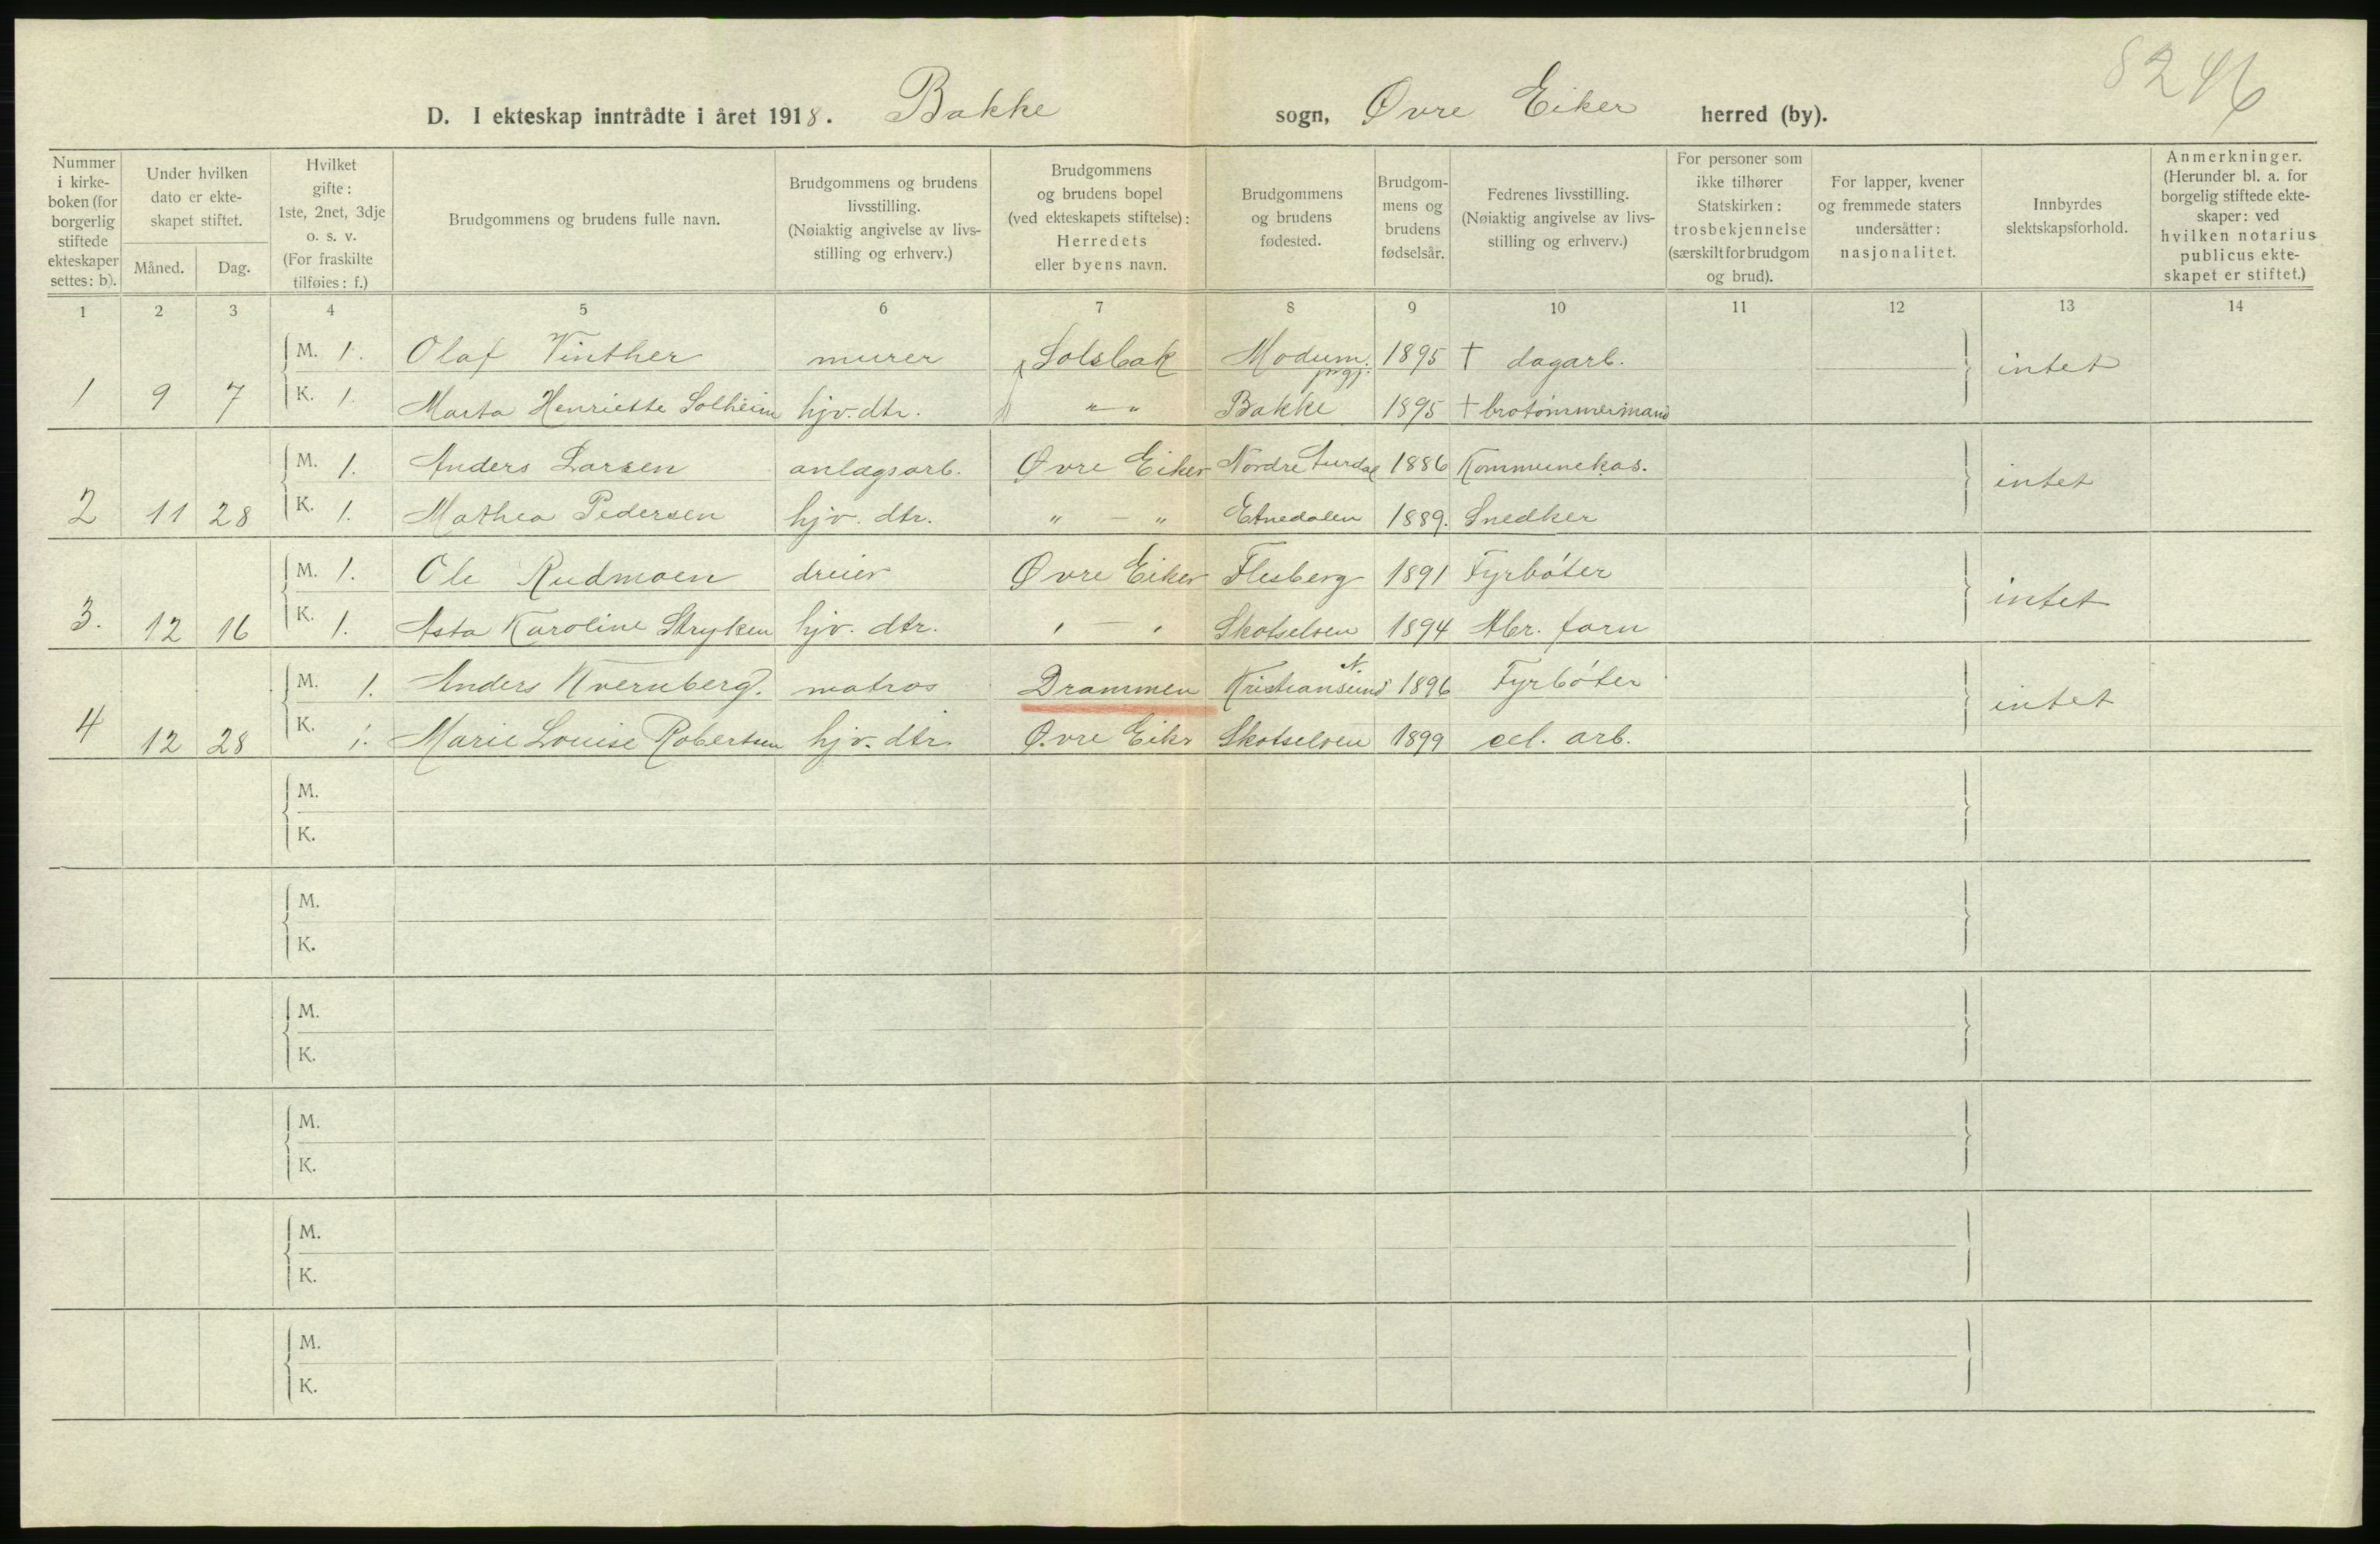 8246
D. I ekteskap inntrådte i året 1918. Bakke sogn, Øvre Eiker herred (by).
Nummer i kirkeboken (for borgerlig stiftede ekteskaper settes: b).
Under hvilken dato er ekteskapet stiftet.
Måned. Dag.
Hvilket gifte: 1ste, 2net, 3dje o. s. v. (For fraskilte tilføies: f.)
Brudgommens og brudens fulle navn.
Brudgommens og brudens livsstilling. (Nøiaktig angivelse av livsstilling og erhverv.)
Brudgommens og brudens bopel (ved ekteskapets stiftelse): Herredets eller byens navn.
Brudgommens og brudens fødested.
Brudgommens og brudens fødselsår.
Fedrenes livsstilling. (Nøiaktig angivelse av livsstilling og erhverv.)
For personer som ikke tilhører Statskirken: trosbekjennelse (særskilt for brudgom og brud).
For lapper, kvener og fremmede staters undersåtter: nasjonalitet.
Innbyrdes slektskapsforhold.
Anmerkninger. (Herunder bl. a. for borgelig stiftede ekteskaper: ved hvilken notarius publicus ekteskapet er stiftet.)
1 2 3 4 5 6 7 8 9 10 11 12 13 14
M. 1. Olaf Vinther murer Solsbak Modum prgj. 1895 † dagarb. intet
1 9 7 K. 1. Marta Henriette Solheim hjv. dtr. " " Bakke 1895 † brotømmermand
M. 1. Anders Larsen anlægsarb. Øvre Eiker Nordre Aurdal 1886 Kommunekas. intet
2 11 28 K. 1. Mathea Pedersen hjv. dtr. " — " Etnedalen 1889. Snedker
M. 1. Ole Rudmoen dreier Øvre Eiker Flesberg 1891 Fyrbøter intet
3. 12 16 K. 1. Asta Karoline Stryken hjv. dtr. " " Skotselven 1894 forn
M. 1. Anders Kvernberg. matros Drammen Kristiansund N. 1896 Fyrbøter intet
4 12 28 K. 1. Marie Louise Robertsen hjv. dtr. Øvre Eiker Skotselven 1899 cel. arb.
M.
K.
M.
K.
M.
K.
M.
K.
M.
K.
M.
K.